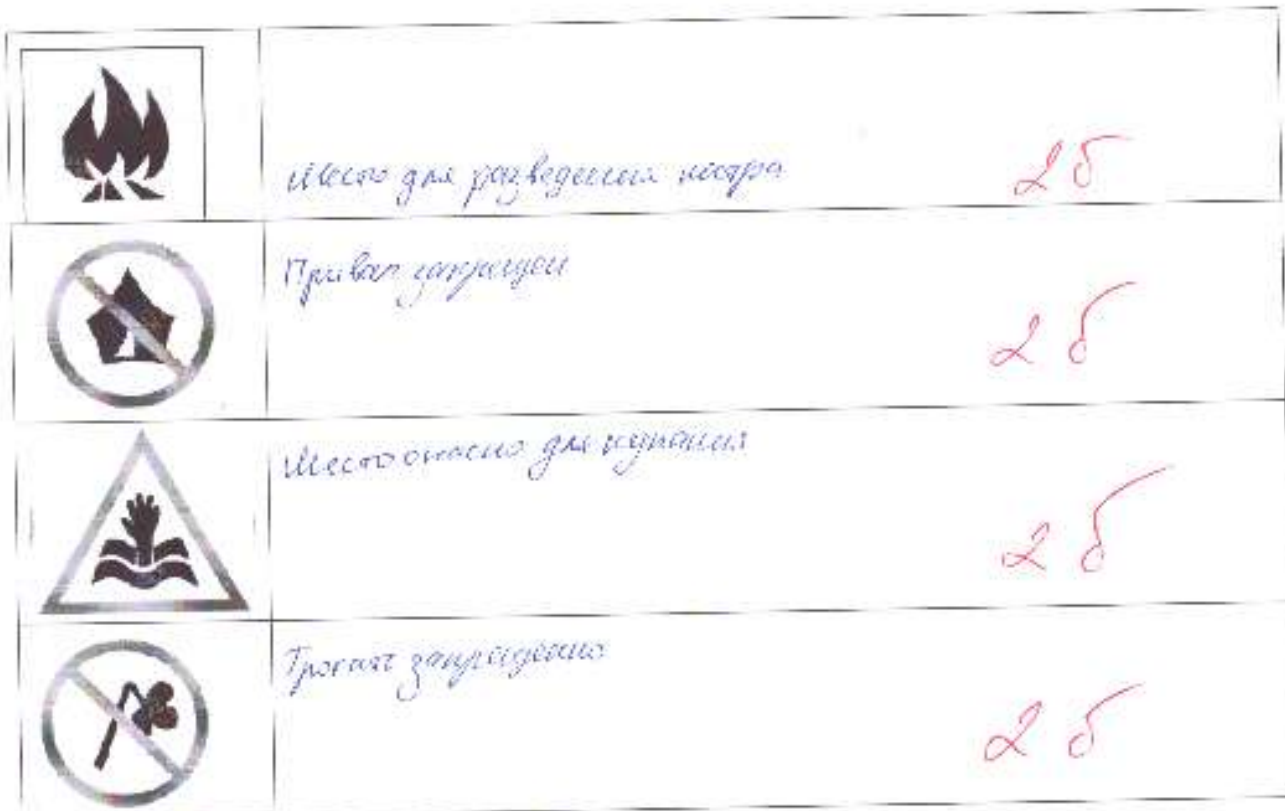 Место для разведения костра
2б
Привал запрещен
2б
Место опасно для купания
2б
запрещенно
2б